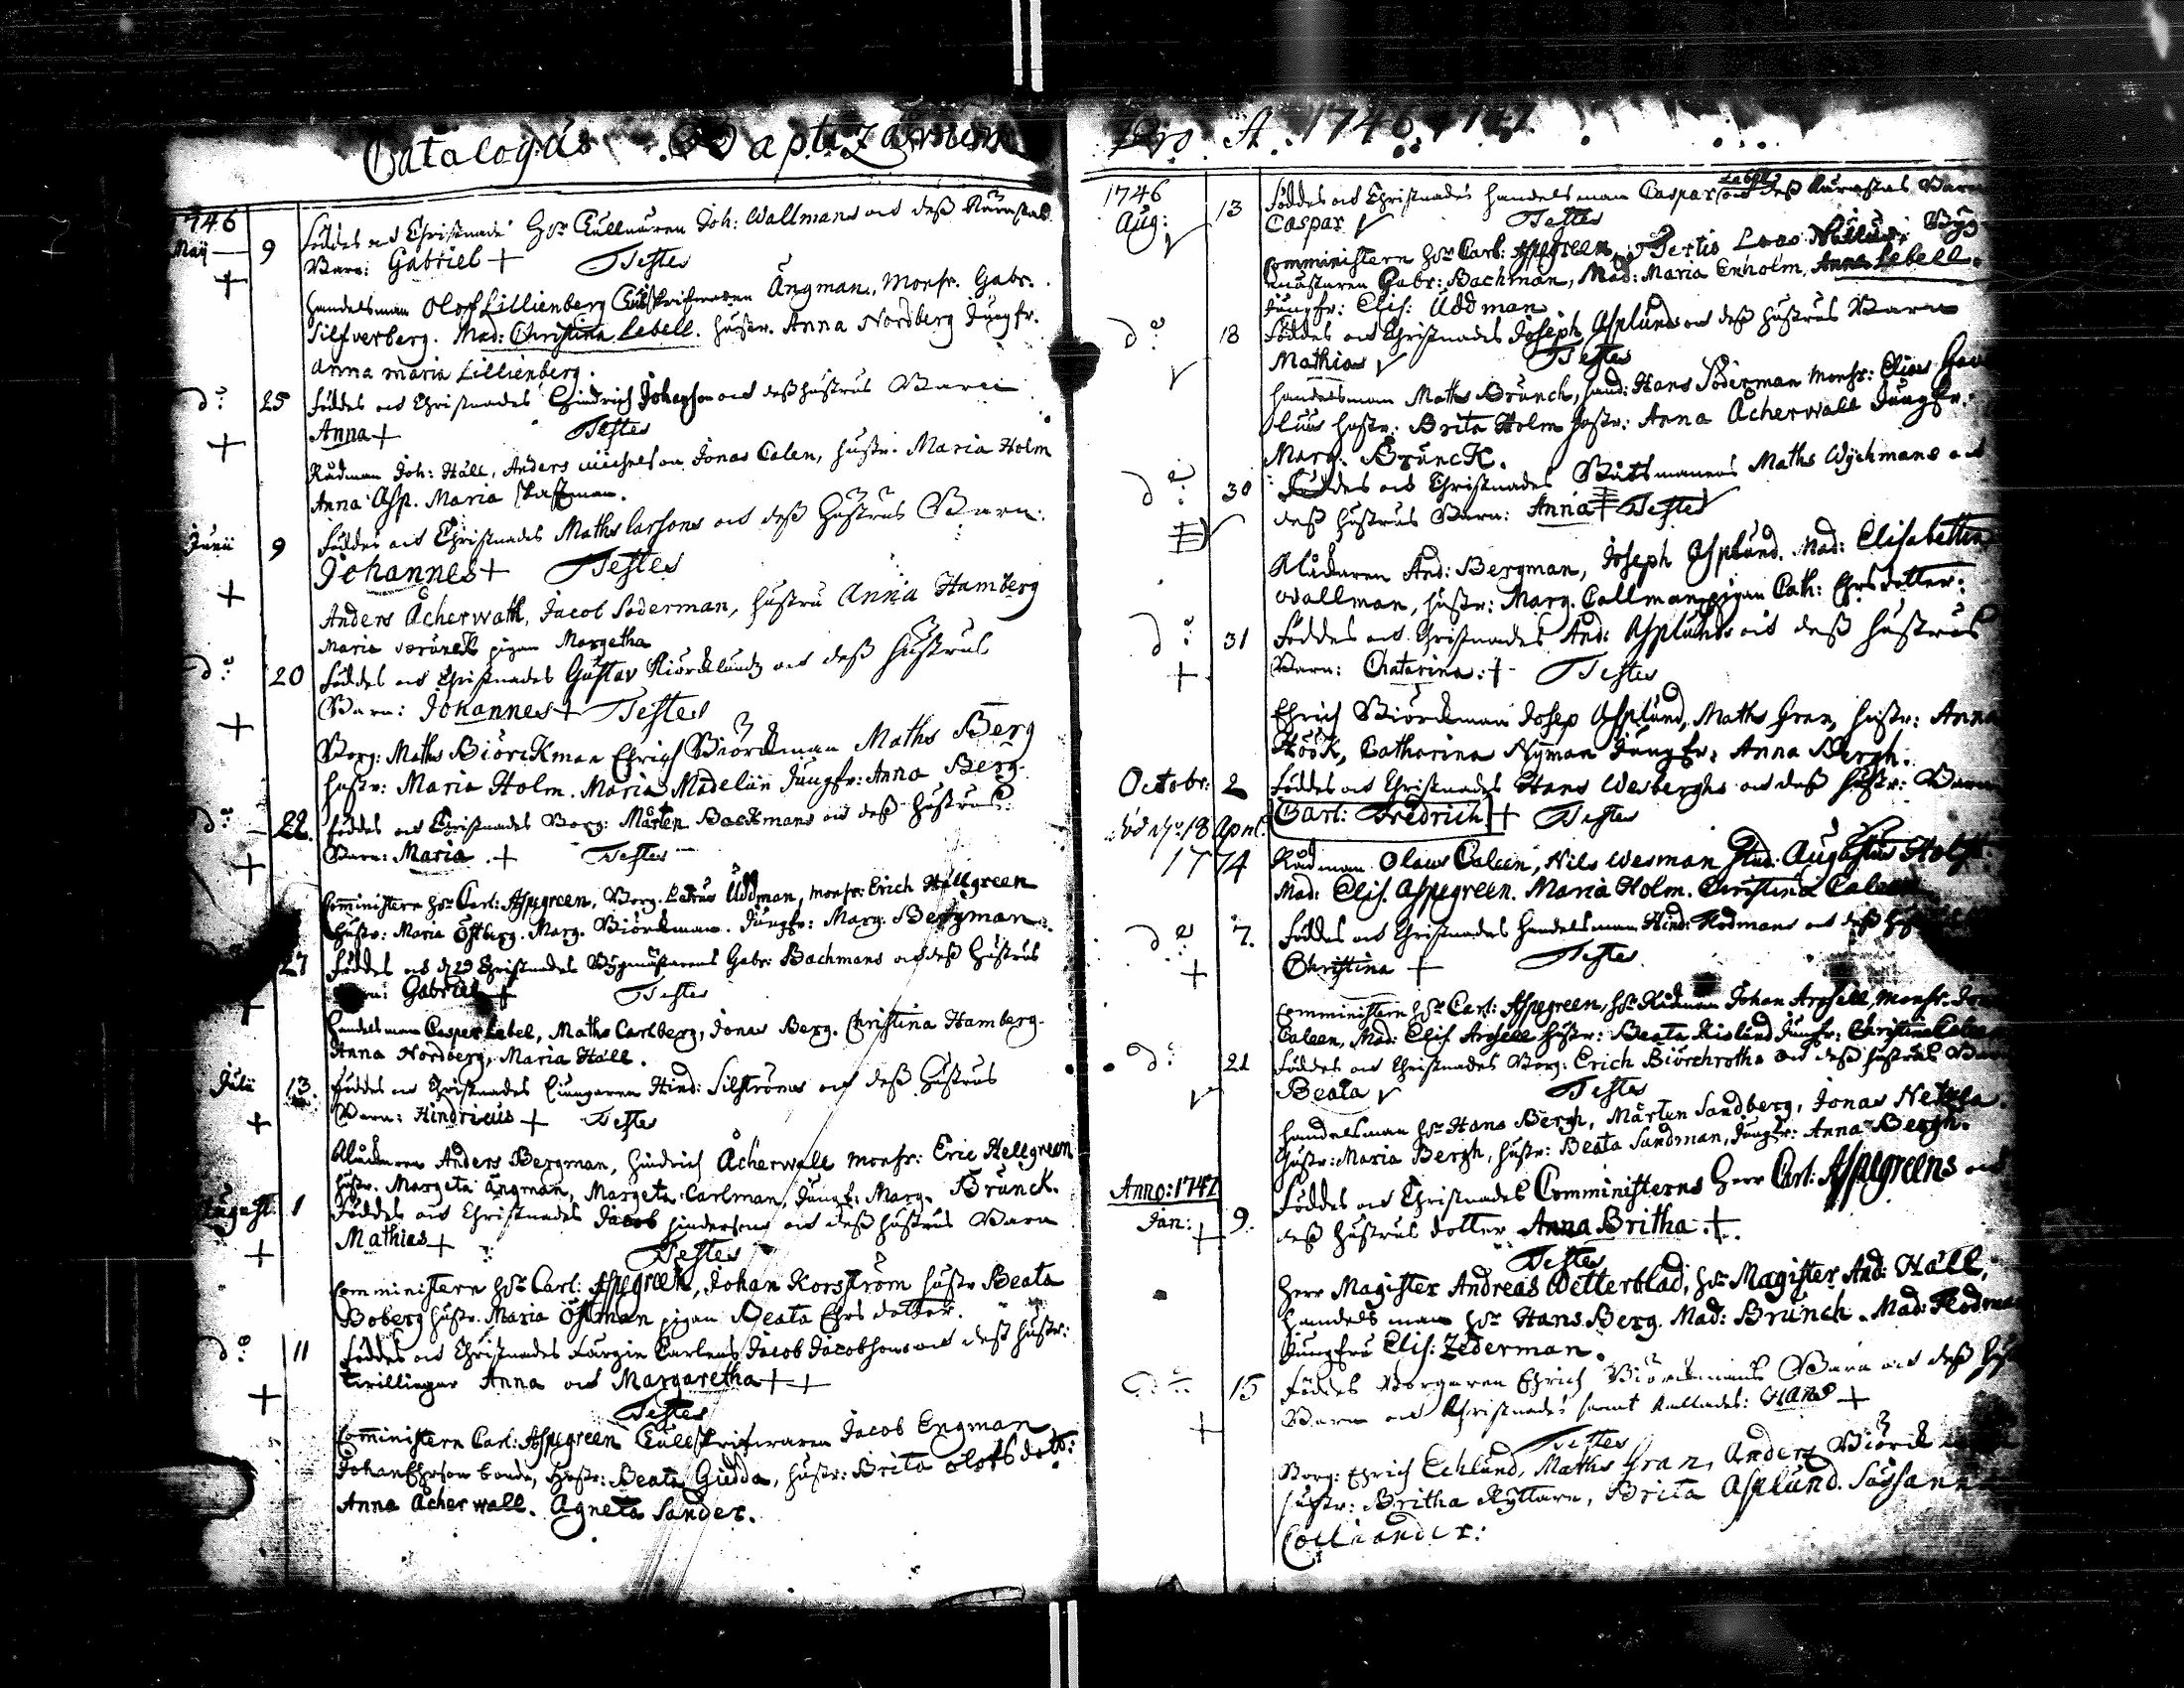 Catalogus Baptizatorum
1746
Maÿ 9 Föddes och Christnades Hr Tullnären Joh: Wallmans och deß Kärastas
Barn: Gabriel + Testes
Handelsman Olof Lillienberg Tullskrifwaren Ängman, Monsr. Gabr.
Silfverberg. Mad: Christina Lebell. hustr. Anna Nordberg Jungfr.
Anna Maria Lillienberg.
do: 25 Föddes och Christnades Hindrich Johansons och deß hustrus Barn
+ Anna + Testes
Rådman Joh: Häll, Anders Michelson Jonas Calen, hustr. Maria Holm
Anna Asp. Maria
Junii 9 Föddes och Christnades Maths Larsons och deß Hustrus Barn:
Johannes + Testes
+ Anders Acherwall, Jacob Söderman, hustru Anna Hamberg
Maria Brunck pigan Margetha
do: 20 Föddes och Christnades Gustav Biörcklunds och deß hustrus
Barn: Johannes + Testes
+ Borg: Maths Biörckman Ehrich Biörckman Maths Berg
hustr: Maria Holm. Maria Madelin Jungfr: Anna Berg.
do: 22. Föddes och Christnades Borg: Mårten Backmans och deß hustrus
+ Barn: Maria. + Testes
Comministern Hr Carl: Aspegreen, Borg. Petrus Uddman, Monsr: Erich Hällgreen
Hustr: Maria Östberg. Marg. Biörckman. Jungfr: Marg. Bergman.
27 Föddes och d. 29 Christnades Bygmästarens Gabr: Bachmans och deß Hustrus
+ Barn: Gabriel + Testes
Handelsman Casper Lebel, Maths Carlberg, Jonas Berg. Christina Hamberg.
Anna Nordberg, Maria Häll.
Julii 13. Föddes och Christnades Hind: Silströms och deß Hustrus
+ Barn: Hindricus + Testes
Anders Bergman, Hindrich Acherwall Monsr: Eric Hellgreen
hustr. Margeta Ängman, Margeta Carlman, Jungf: Marg. Brunck.
August. 1 Föddes och Christnades Jacob Hindersons och deß hustrus Barn
+ Mathias + Testes
Comministern Hr Carl: Aspegreen, Johan Korsström hustr Beata
Boberg hustr. Maria Östman pigan Beata Ehrs dotter.
do: 11 Föddes och Christnades Jacob Jacobsons och deß hustr:
+ twillingar Anna och Margaretha + +
Testes
Comministern Carl: Aspegreen Tullskrifwaren Jacob Engman
Johan Ehrson bonde, Hustr: Beata Giedda, hustr: Brita Olofsdott:
Anna Acherwall. Agneta Sander.
Pro A: 1746 1747
1746
Aug: 13 Föddes och Christnades Handelsman Caspar Labell och deß Kärastas Barn
Caspar Testes
Comministern Hr Carl: Aspegreen,
Gabr: Bachman, Mad: Maria Enholm, Anna Lebell.
Jungfr: Elis: Uddman
do: 18 Föddes och Christnades Joseph Asplunds och deß hustrus Barn
Mathias Testes
Handelsman Maths Brunck, Hand: Hans Söderman Monsr: Elias
hustr: Brita Holm hustr: Anna Acherwall Jungfr.
Marg. Brunck.
do: 30 Föddes och Christnades Båtsmanens Maths Wijchmans och
deß hustrus Barn: Anna Testes
And: Bergman, Joseph Asplund. Mad: Elisabetha
Wallman, hustr: Marg. Callman pigan Cath: Ehrsdotter:
do: 31 Föddes och Christnades And: Asplunds och deß hustrus
+ Barn: Chatarina: + Testes
Ehrich Biörckman Josep Asplund, Maths Gran, hustr: Anna
Höök, Catharina Nyman Jungfr: Anna Bergh.
Octobr: 2 Föddes och Christnades Hans Wesberghs och deß hustr: Barn
Carl: Fredrich + Testes
död dn 18 April. 1774
Rådman Olaus Caleen, Nils Wesman Stud: Augustus Holst
Mad: Elis. Aspegreen. Maria Holm. Christina Caleen
do: 7. Föddes och Christnades Handelsman Hind: Rodmans och deß
+ Christina + Testes
Comministern Hr Carl: Aspegreen, Hr Rådman Johan Argelle, Monsr.
Caleen, Mad: Elis Argelle hustr: Beata Jungfr: Christina Caleen
do: 21 Föddes och Christnades Borg: Erich Biörchroths och deß hustrus Barn
Beata Testes
Handelsman Hr Hans Bergh, Mårten Sandberg, Jonas
Hustr: Maria Bergh, hustr: Beata Sandman, Jungfr: Anna Bergh.
Anno: 1747
Jan: 9. Föddes och Christnades Comministerns Herr Carl: Aspegreens och
+ deß hustrus dotter Anna Britha. +.
Testes
Herr Magister Andreas Wetterblad, Hr Magister And: Häll,
Handelsman Hr Hans Berg. Mad: Brunck. Mad: Rodman
Jungfru Elis: Zederman.
do: 15 Föddes Borgaren Ehrich Biörckmans Barn och deß
+ Barn och Christnades samt kallades: Hans +
Testes
Borg: Ehrich Ecklund, Maths Gran, Anders Biörck
hustr: Britha Ryttare, Brita Asplund. Sussanna
Colliander: